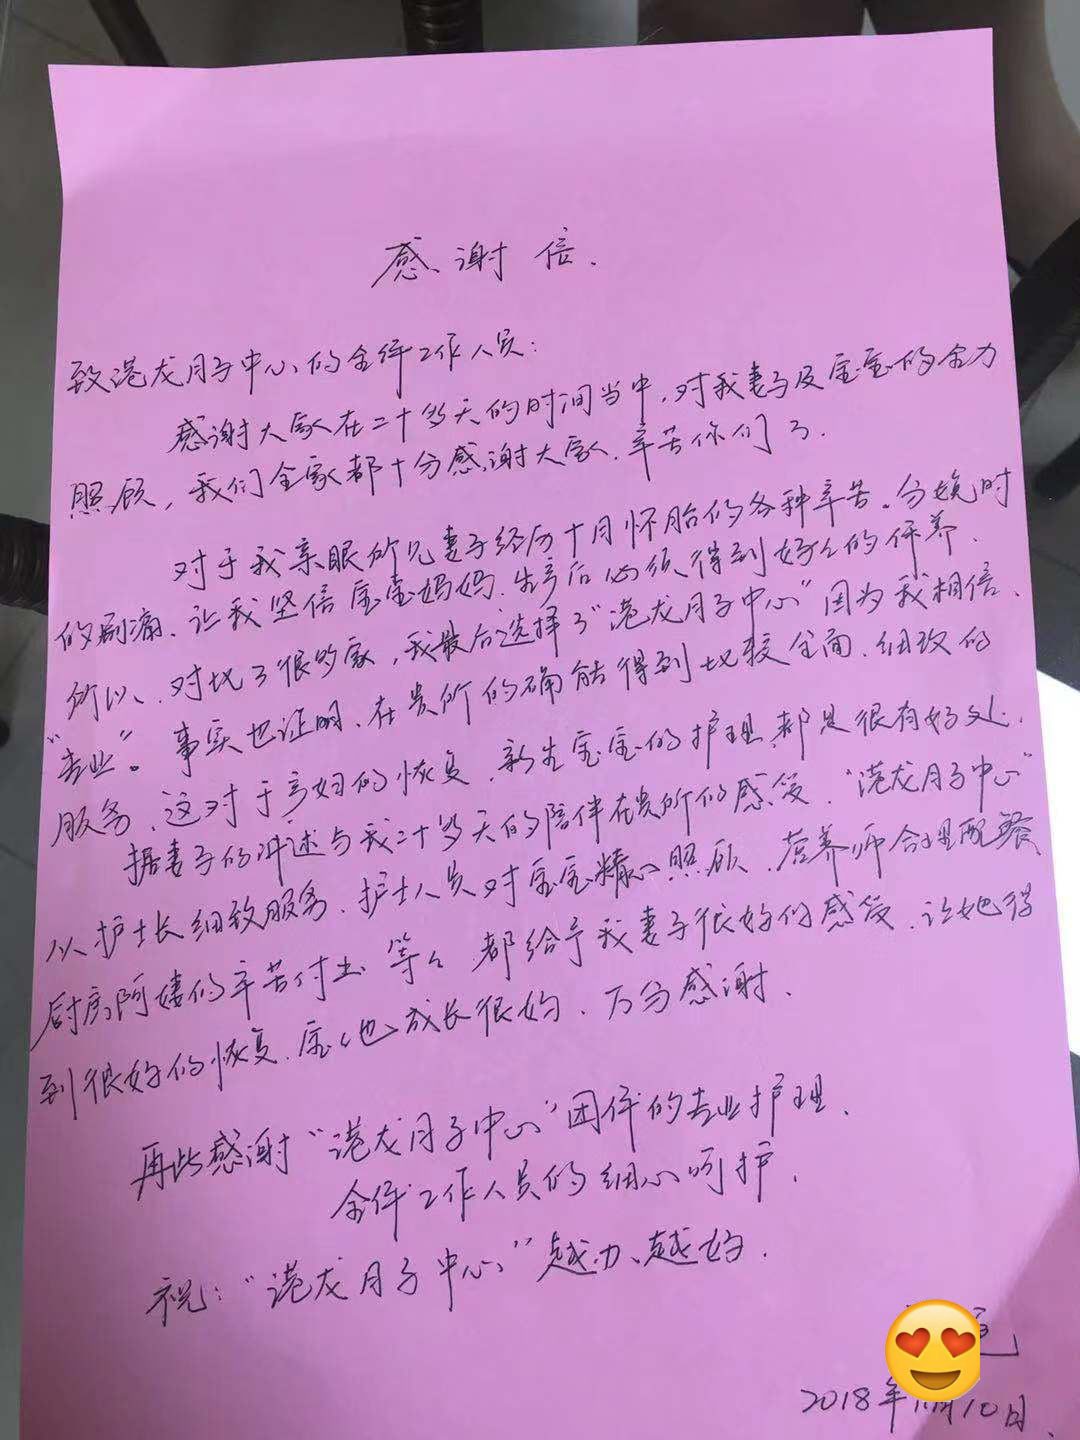 感谢信.
致港龙月子中心的全体工作人员:
感谢大家在二十多天的时间当中,对我妻子及宝宝的全力
照顾,我们全家都十分感谢大家.辛苦你们了.
对于我亲眼所见妻子经历十月怀胎的各种辛苦。分娩时
的剧痛、让我坚信宝宝妈妈.生产后必须得到好好的保养.
所以、对比了很多家,我最后选择了“港龙月子中心”因为我相信.
“专业”。事实也证明、在贵所的确能得到比较全面、细致的
服务、这对于产妇的恢复、新生宝宝的护理、都是很有好处.
据妻子的讲述与我二十多天的陪伴在贵所的感受.“港龙月子中心”
从护士长细致服务、护士人员对宝宝精心照顾、营养师合理配餐
厨房阿姨的辛苦付出等々都给予我妻子很好的感受、让她得
到很好的恢复、宝々也成长很好、万分感谢.
再此感谢“港龙月子中心”团体的专业护理.
全体工作人员的细心呵护.
祝:“港龙月子中心”越办、越好.
2018年11月10日.